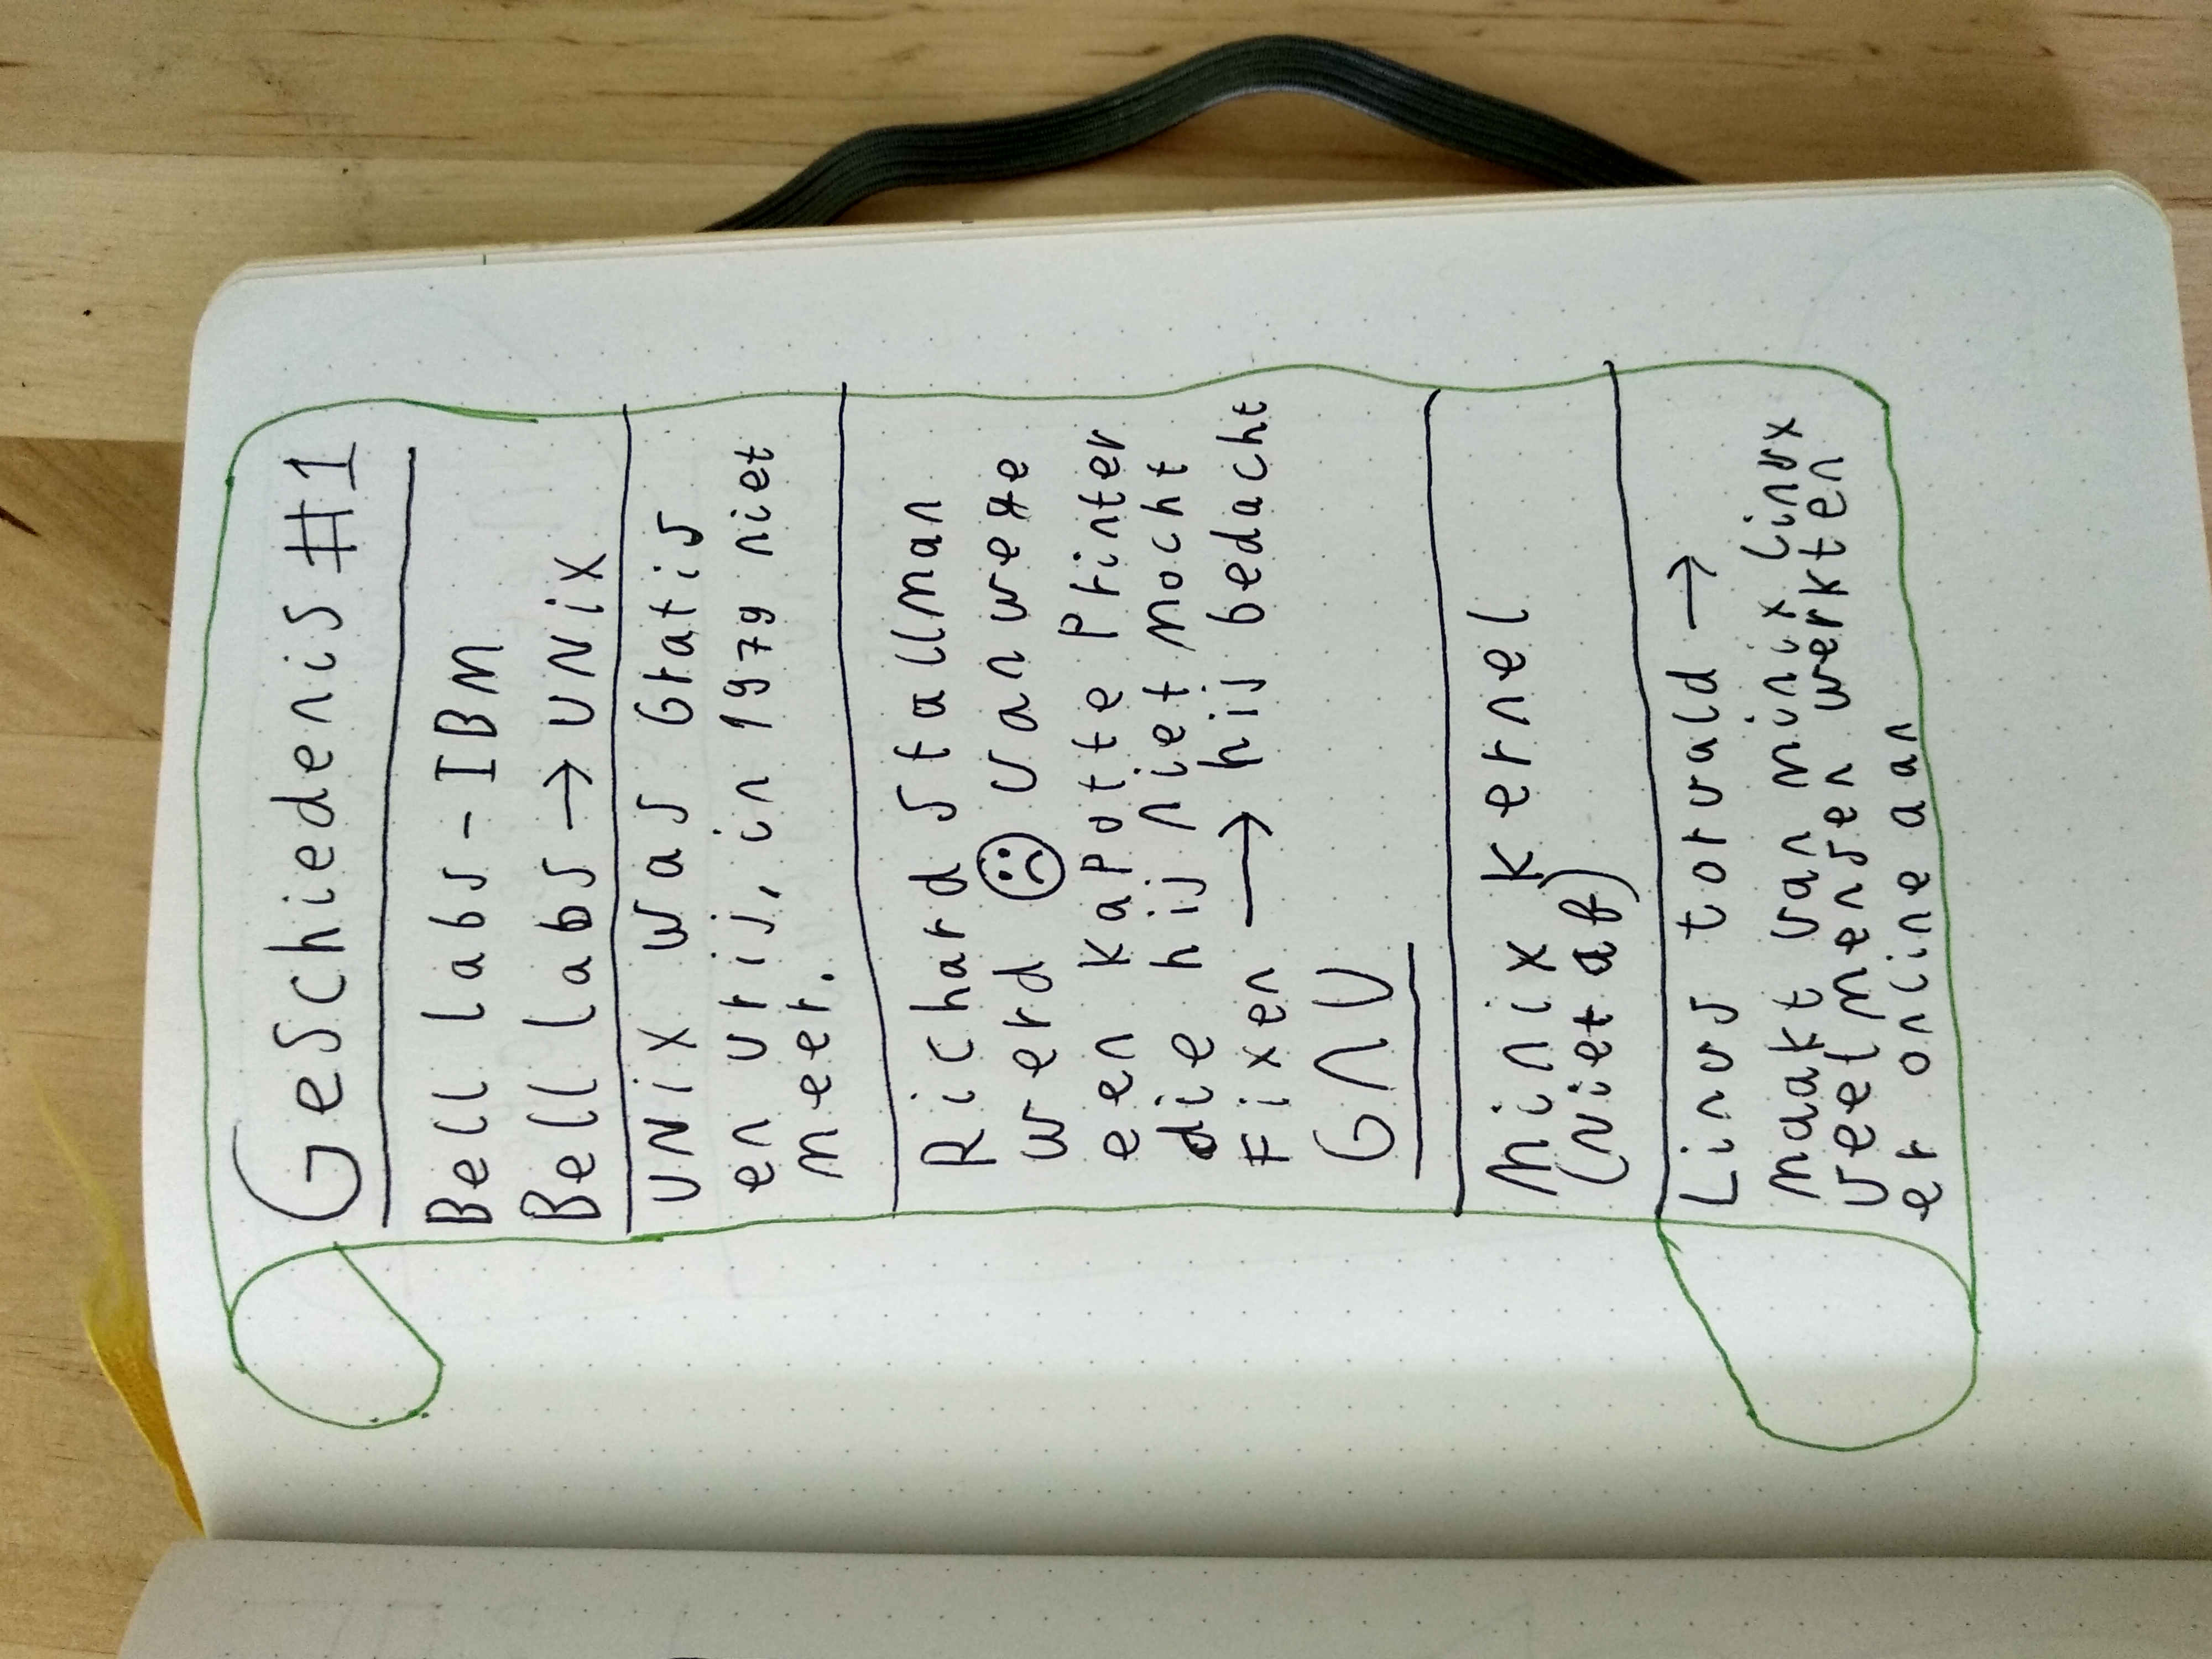 Geschiedenis #1
Bell labs - IBM
Bell labs → UNix
UNix was Gratis
en vrij, in 1979 niet
meer.
Richard Stallman
werd ☹ vanwege
een kapotte Printer
die hij niet mocht
Fixen → hij bedacht
GNU
Minix kernel
(Niet af)
Linus torvald →
maakt van minix linux
veel mensen werkten
er online aan